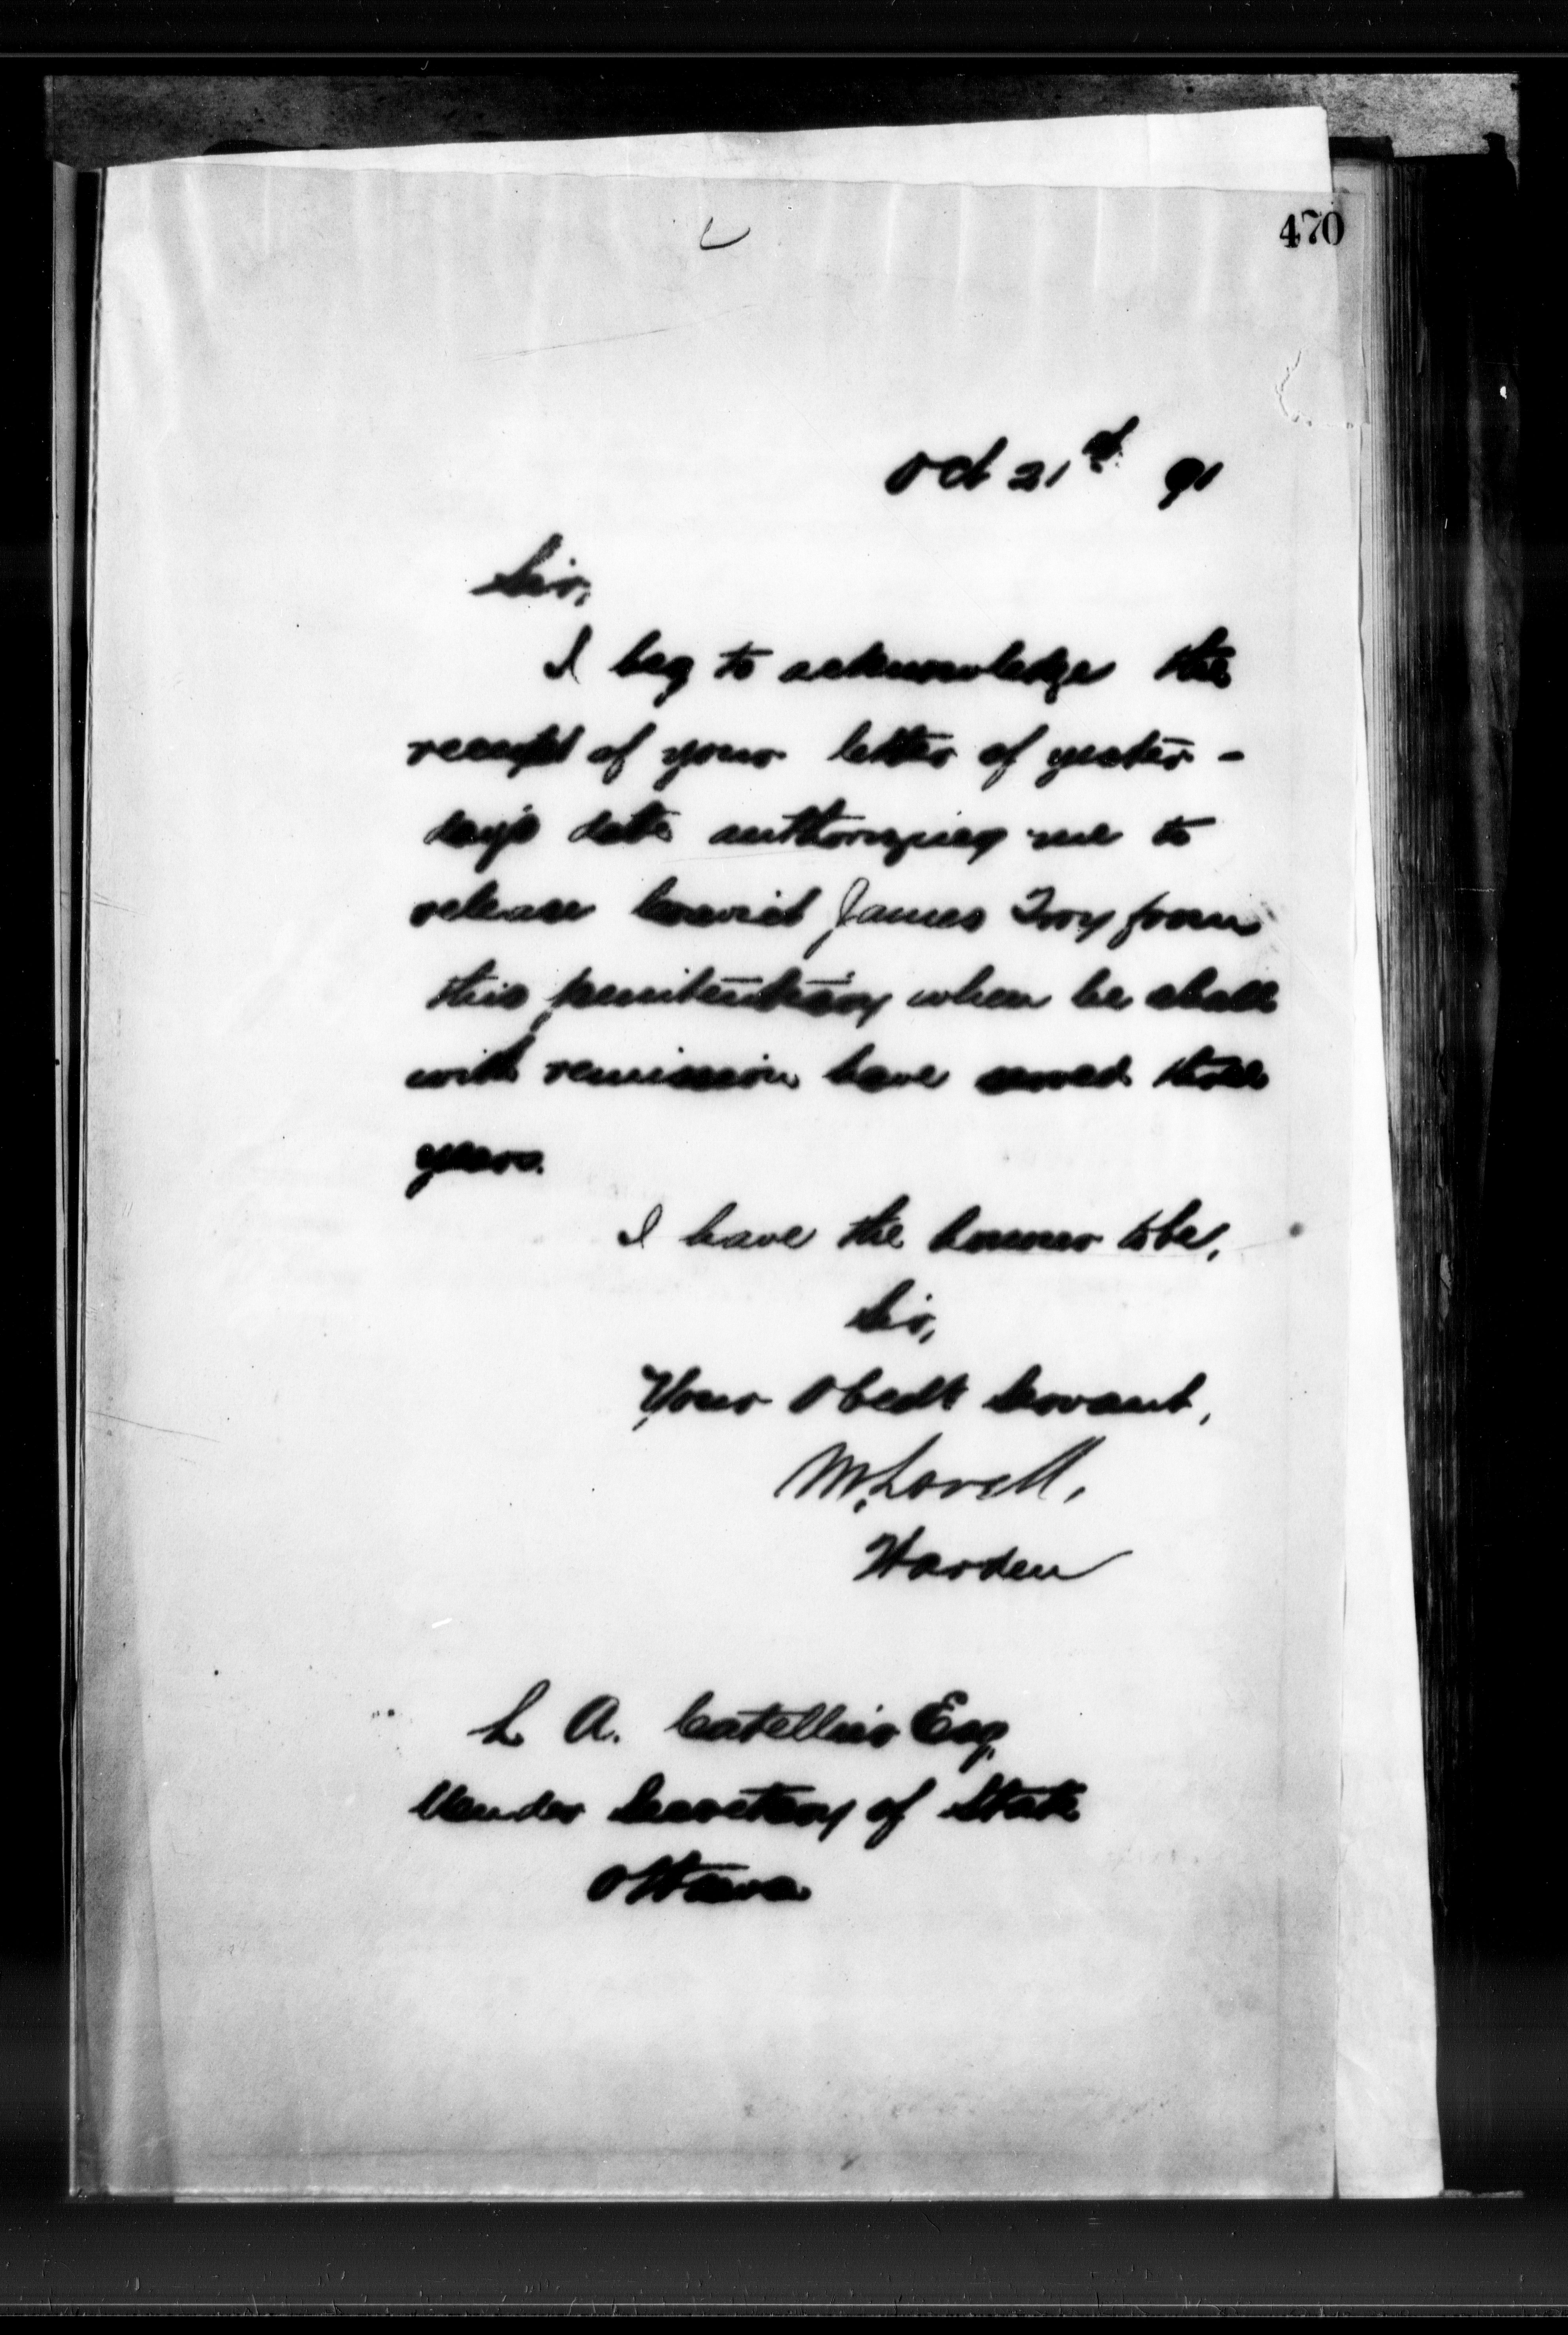 470
Oct 21st 91
Sir,
I beg to acknowledge the
receipt of your letter of yester-
day's date authorizing me to
release Convict James Troy from
this penitentiary when he shall
with remission have served three
years.
I have the honour to be,
Sir,
Your Obedt Servant,
M. Lavell,
Warden
L A. Catellier Esq.
Under Secretary of State
Ottawa